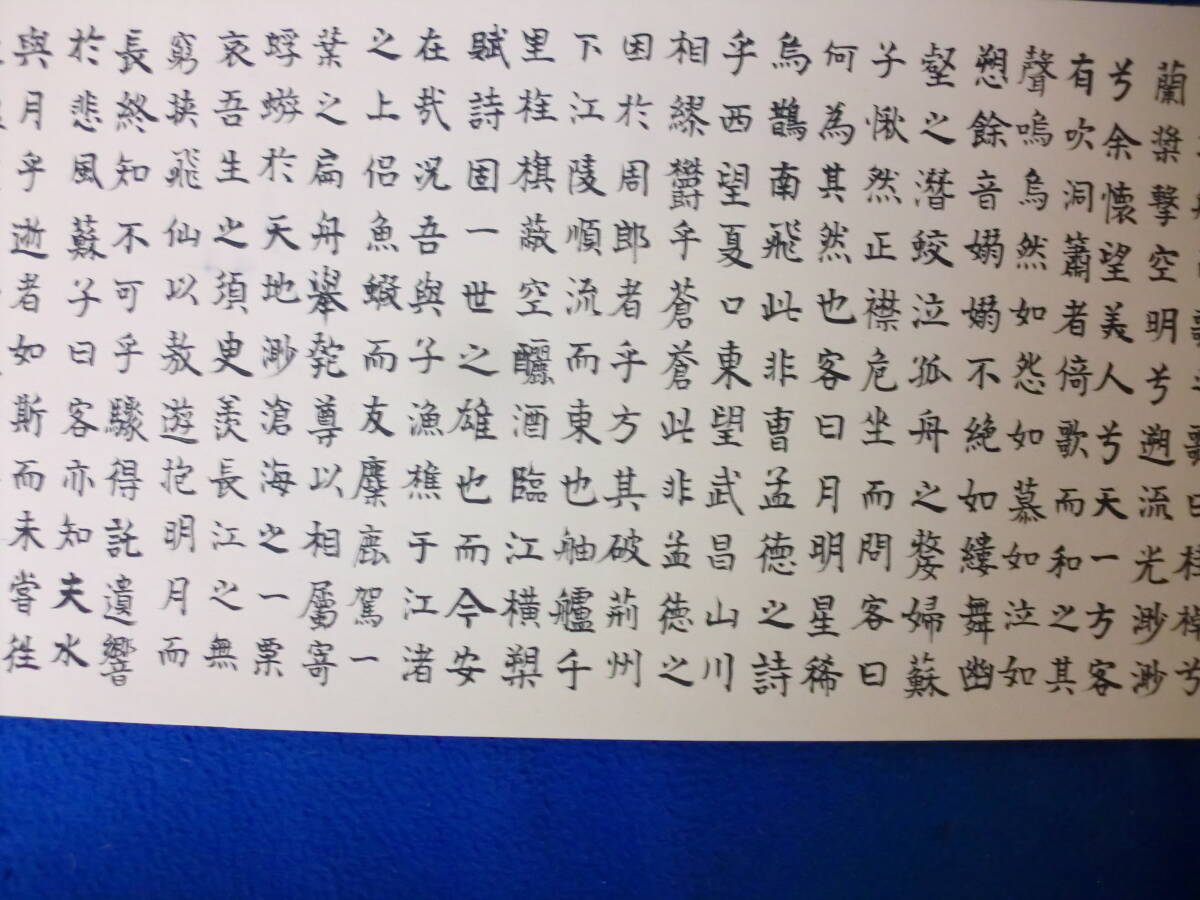 蘭槳擊空明兮遡流光渺渺
兮余懷望美人兮天一方客
有吹洞簫者倚歌而和之其
聲嗚烏然如怨如慕如泣如
愬餘音嫋嫋不絶如縷舞幽
壑之潛蛟泣孤舟之嫠婦蘇
子愀然正襟危坐而問客曰
何為其然也客曰月明星稀
烏鵲南飛此非曹孟德之詩
乎西望夏口東望武昌山川
相繆鬱乎蒼蒼此非孟德之
困於周郎者乎方其破荊州
下江陵順流而東也舳艫千
里旌旗蔽空釃酒臨江橫槊
賦詩固一世之雄也而今安
在哉況吾與子漁樵于江渚
之上侶魚蝦而友麋鹿駕一
葉之扁舟舉匏尊以相屬寄
蜉蝣於天地渺滄海之一粟
哀吾生之須臾羨長江之無
窮挾飛仙以敖遊抱明月而
長終知不可乎驟得託遺響
於悲風蘇子曰客亦知夫水
與月乎逝者如斯而未嘗往